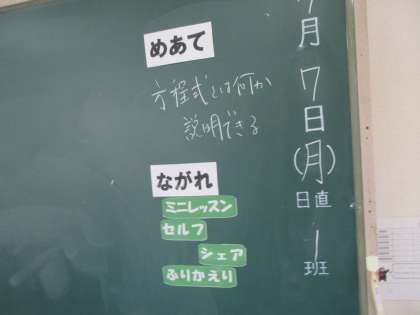 めあて
方程式とは何か
説明できる
ながれ
ミニレッスン
セルフ
シェア
ふりかえり
月7日(月)
日直
1
班